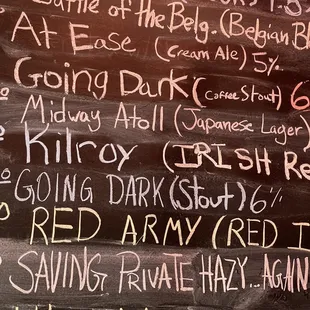 Battle of the Belg. (Belgian Bl
At Ease (Cream Ale) 5%
Going Dark (Coffee Stout) 6
Midway Atoll (Japanese Lager)
Kilroy (IRISH Re
GOING DARK (Stout) 6%
RED ARMY (RED I
SAVING PRIVATE HAZY...AGAIN